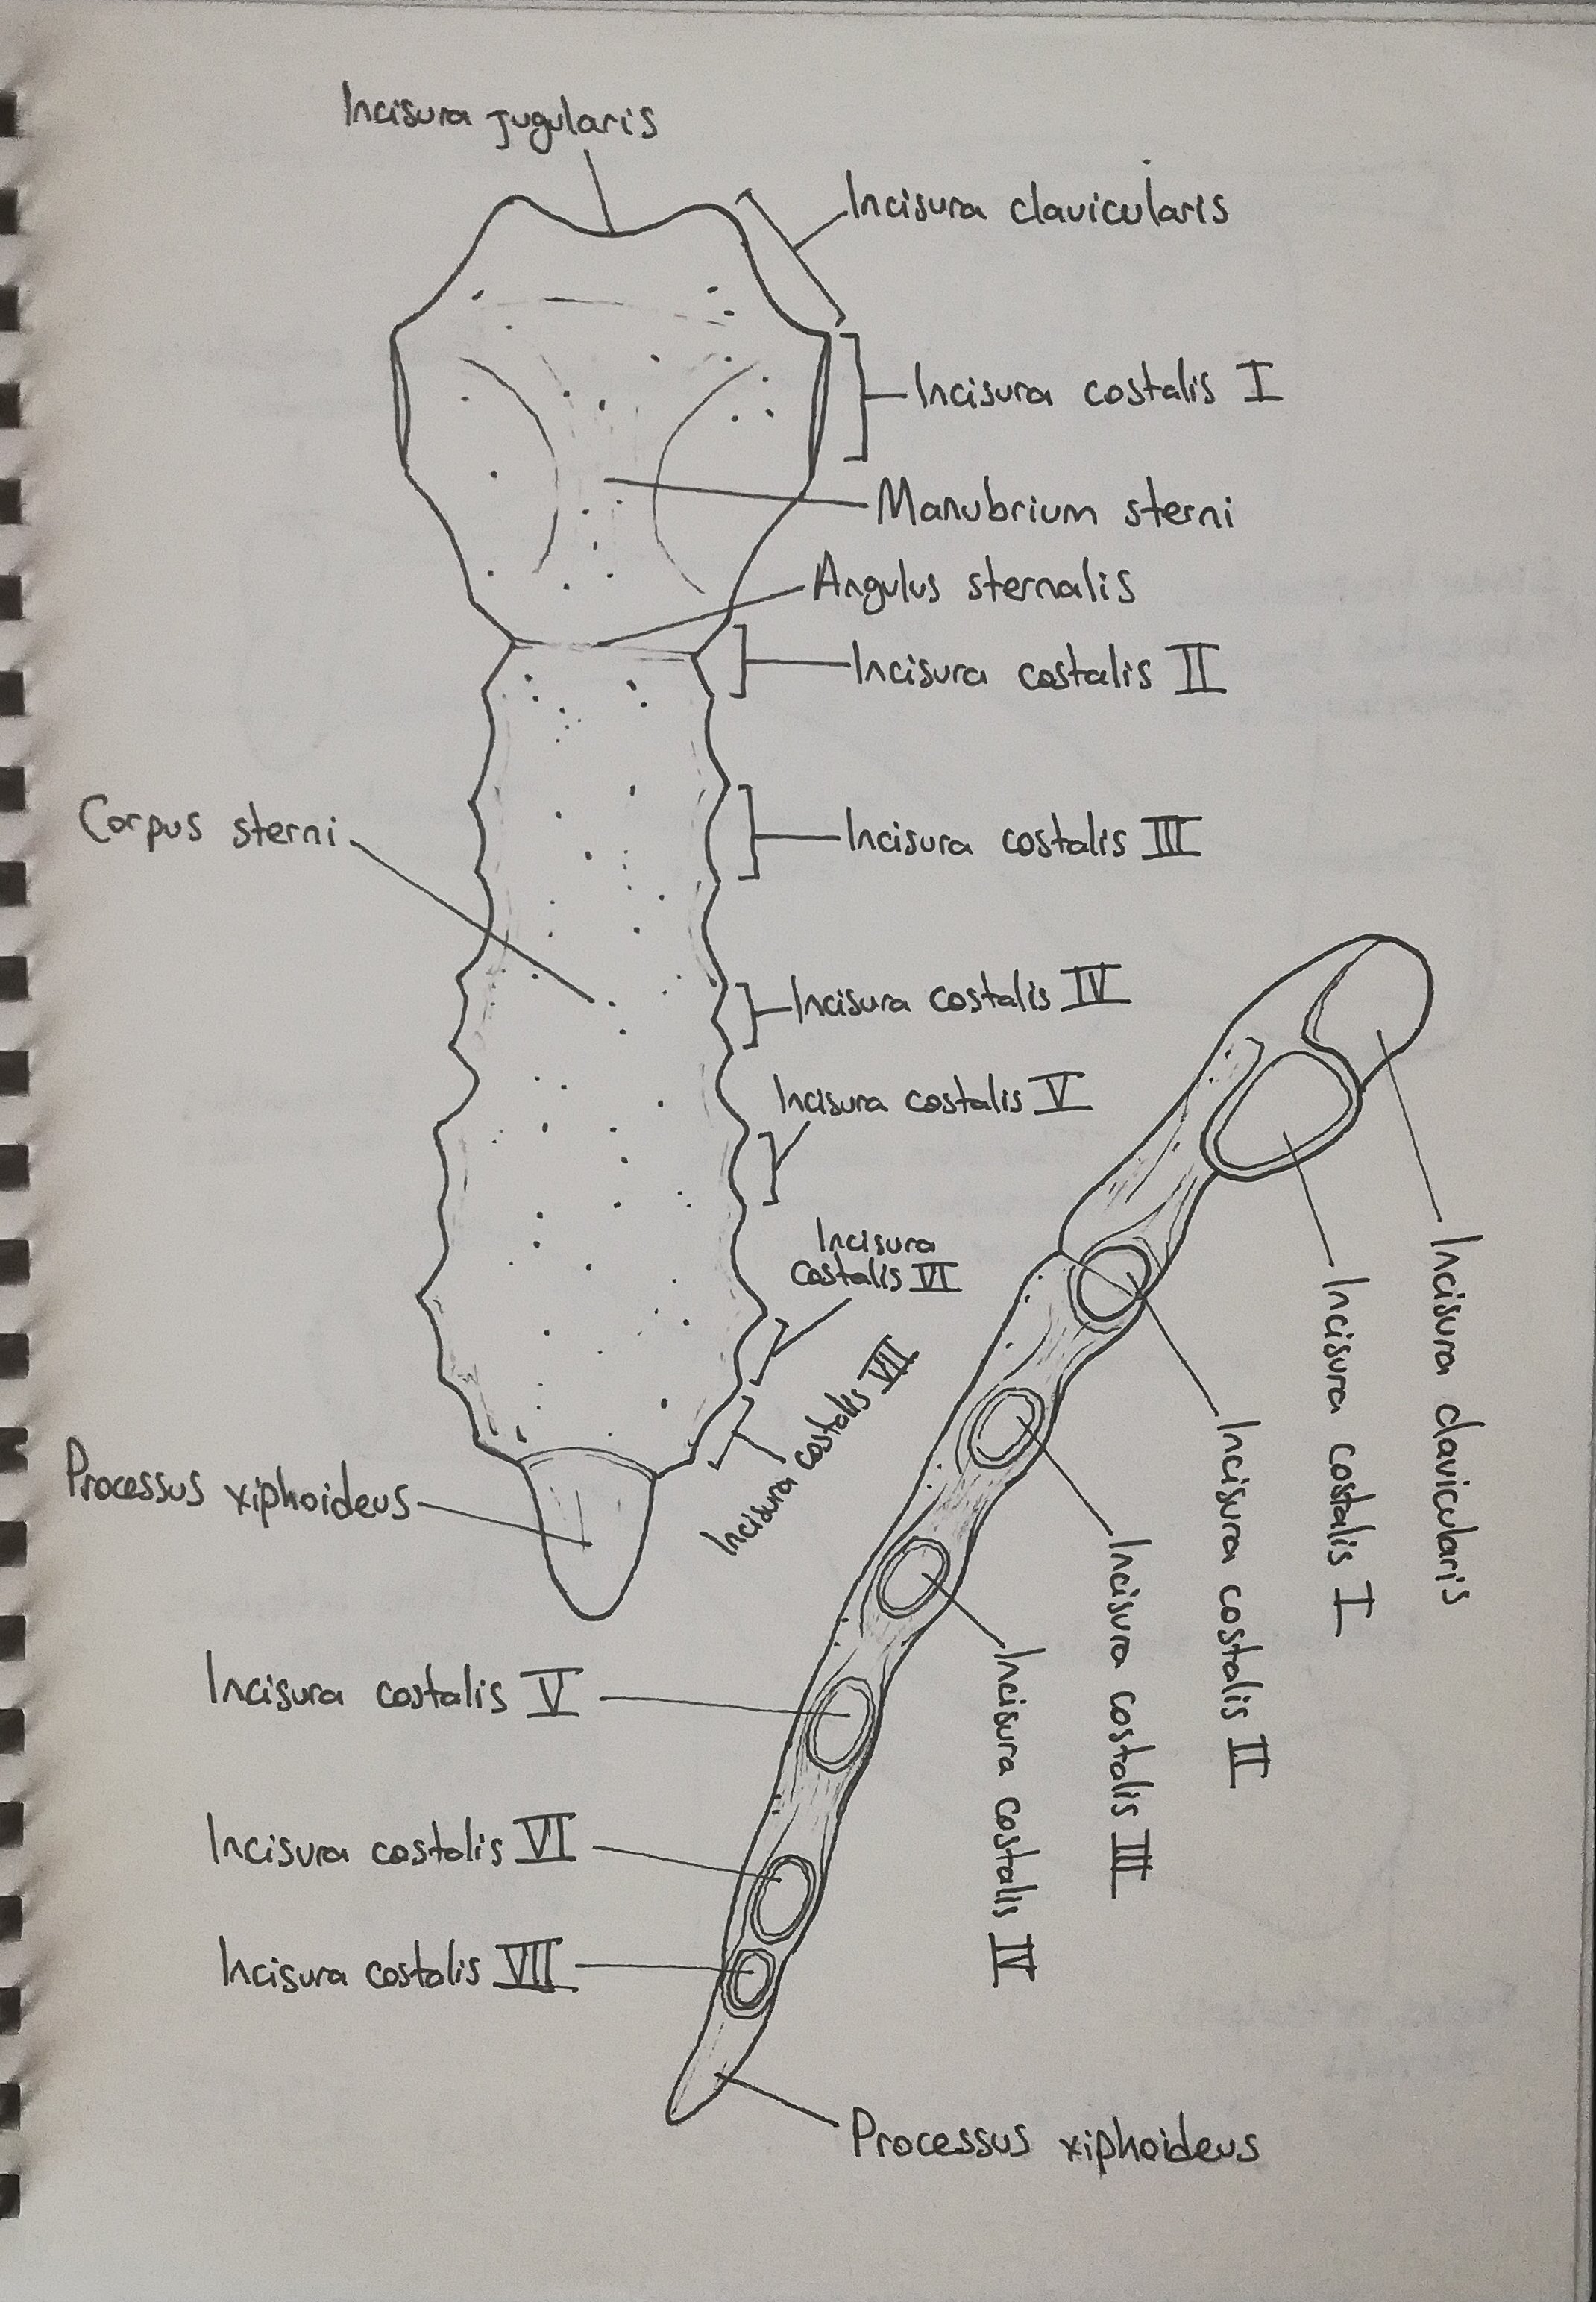 Incisura jugularis
Incisura clavicularis
Incisura costalis I
Manubrium sterni
Angulus sternalis
Incisura costalis II
Corpus sterni
Incisura costalis III
Incisura costalis IV
Incisura costalis V
Incisura
costalis VI
Incisura costalis VII
Processus xiphoideus
Incisura clavicularis
Incisura costalis I
Incisura costalis II
Incisura costalis III
Incisura costalis IV
Incisura costalis V
Incisura costalis VI
Incisura costalis VII
Processus xiphoideus